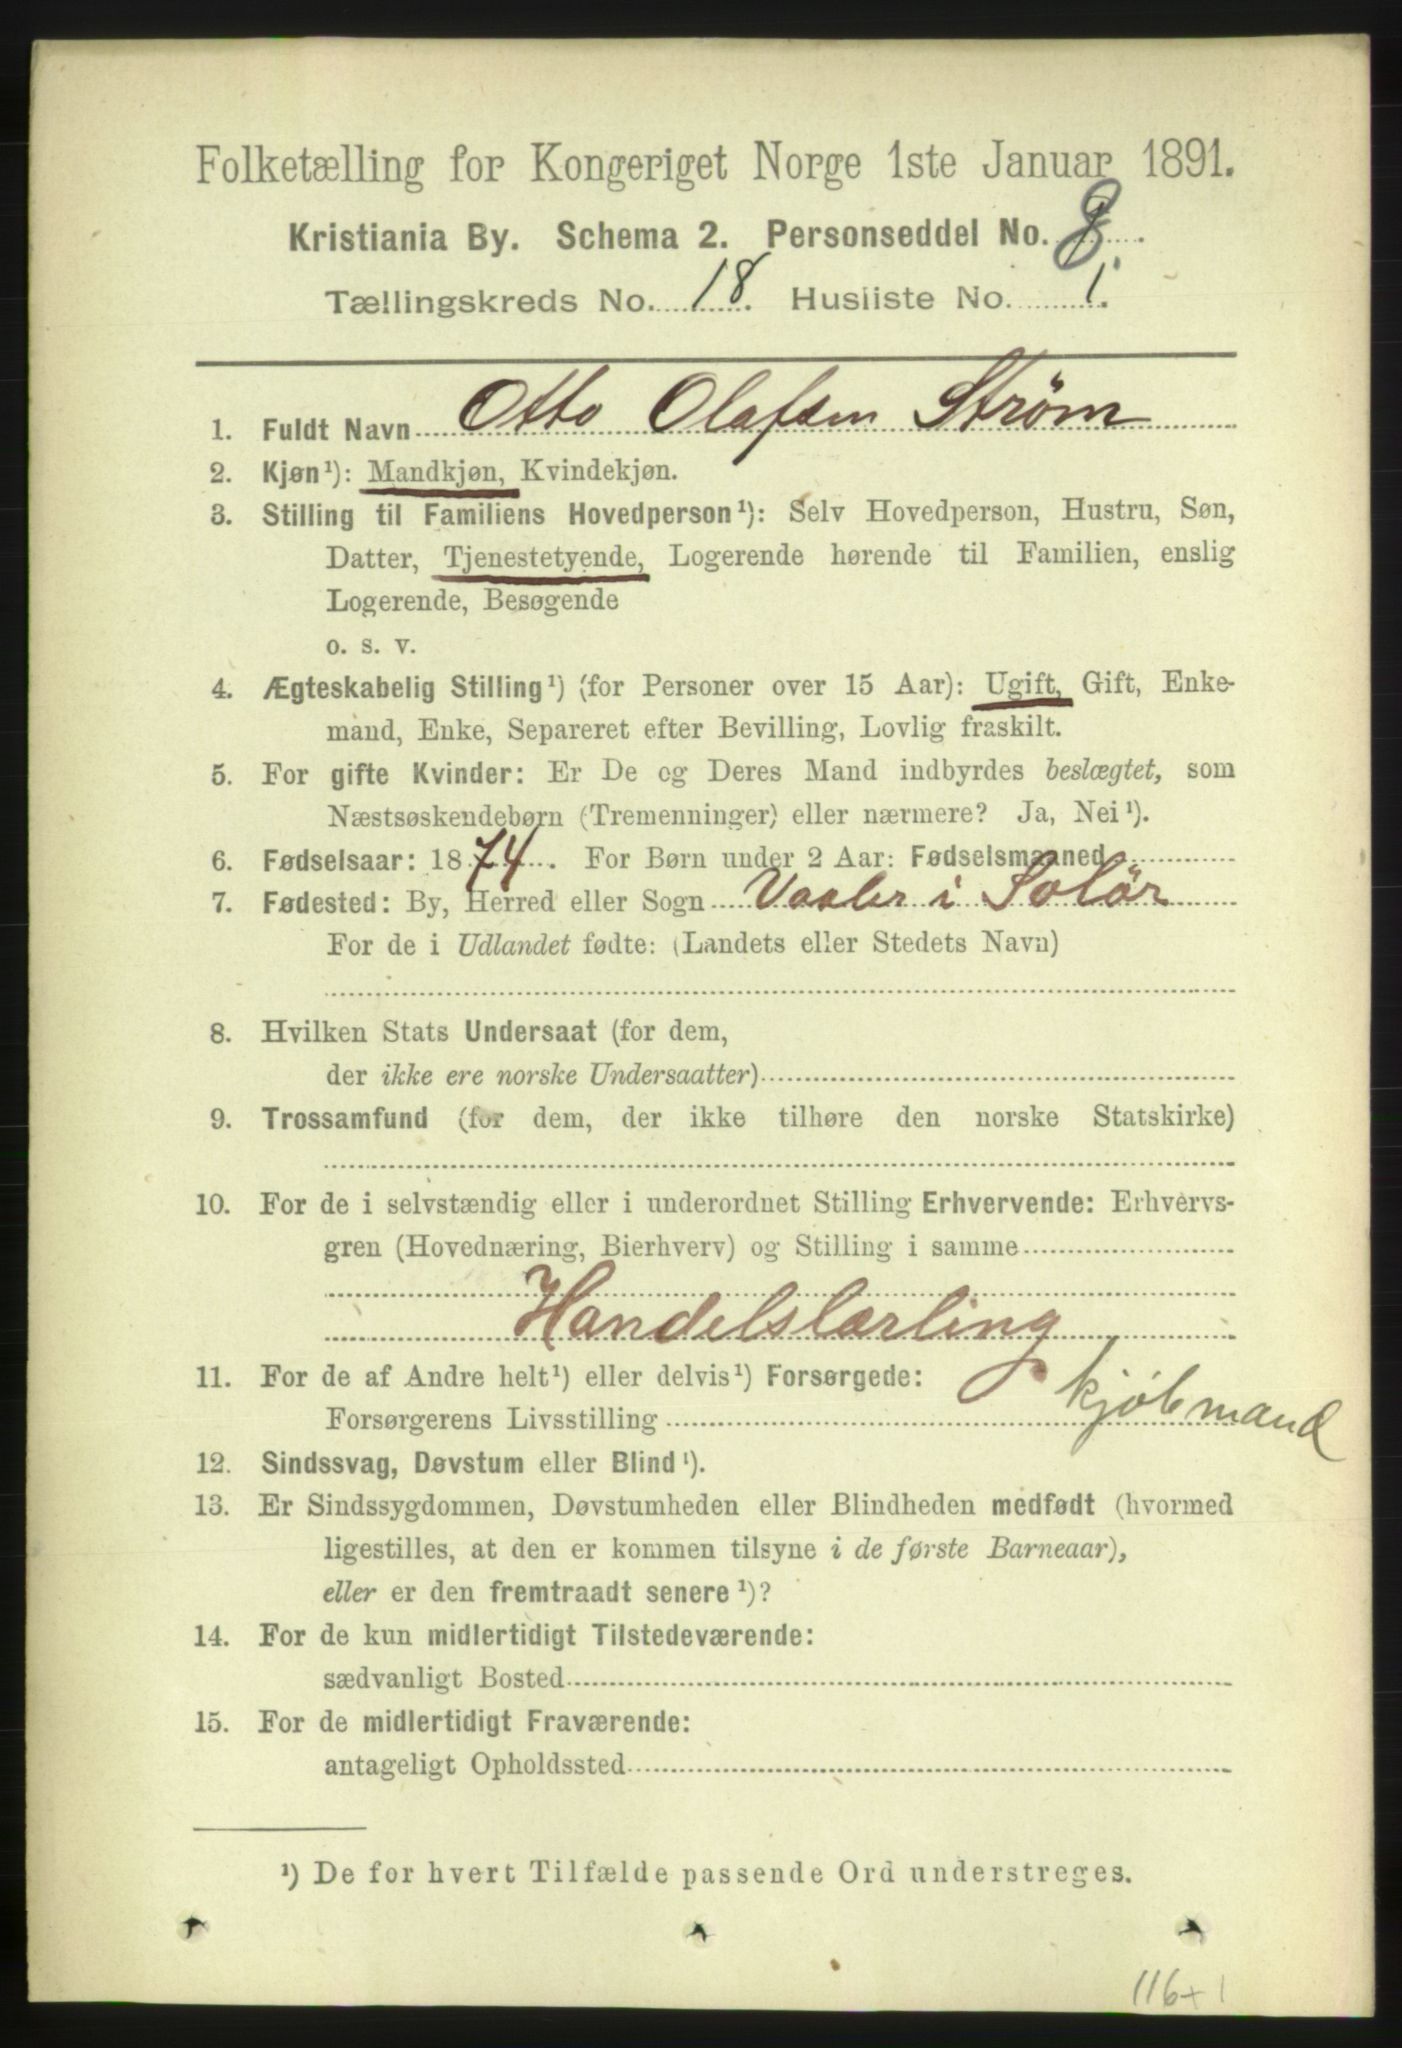 Folketælling for Kongeriget Norge 1ste Januar 1891.
Kristiania By. Schema 2. Personseddel No. 8.
Tællingskreds No. 18. Husliste No. 1.
1. Fuldt Navn Otto Olafsen Strøm
2. Kjøn¹): Mandkjøn, Kvindekjøn.
3. Stilling til Familiens Hovedperson¹): Selv Hovedperson, Hustru, Søn,
Datter, Tjenestetyende, Logerende hørende til Familien, enslig
Logerende, Besøgende
o. s. v.
4. Ægteskabelig Stilling¹) (for Personer over 15 Aar): Ugift, Gift, Enke-
mand, Enke, Separeret efter Bevilling, Lovlig fraskilt.
5. For gifte Kvinder: Er De og Deres Mand indbyrdes beslægtet, som
Næstsøskendebørn (Tremenninger) eller nærmere? Ja, Nei¹).
6. Fødselsaar: 1874. For Børn under 2 Aar: Fødselsmaaned
7. Fødested: By, Herred eller Sogn Vaaler i Solør
For de i Udlandet fødte: (Landets eller Stedets Navn)
8. Hvilken Stats Undersaat (for dem,
der ikke ere norske Undersaatter)
9. Trossamfund (for dem, der ikke tilhøre den norske Statskirke)
10. For de i selvstændig eller i underordnet Stilling Erhvervende: Erhvervs-
gren (Hovednæring, Bierhverv) og Stilling i samme
Handelslærling
11. For de af Andre helt¹) eller delvis¹) Forsørgede:
Forsørgerens Livsstilling kjøbmand
12. Sindssvag, Døvstum eller Blind¹).
13. Er Sindssygdommen, Døvstumheden eller Blindheden medfødt (hvormed
ligestilles, at den er kommen tilsyne i de første Barneaar),
eller er den fremtraadt senere¹)?
14. For de kun midlertidigt Tilstedeværende:
sædvanligt Bosted
15. For de midlertidigt Fraværende:
antageligt Opholdssted
¹) De for hvert Tilfælde passende Ord understreges.
116+1